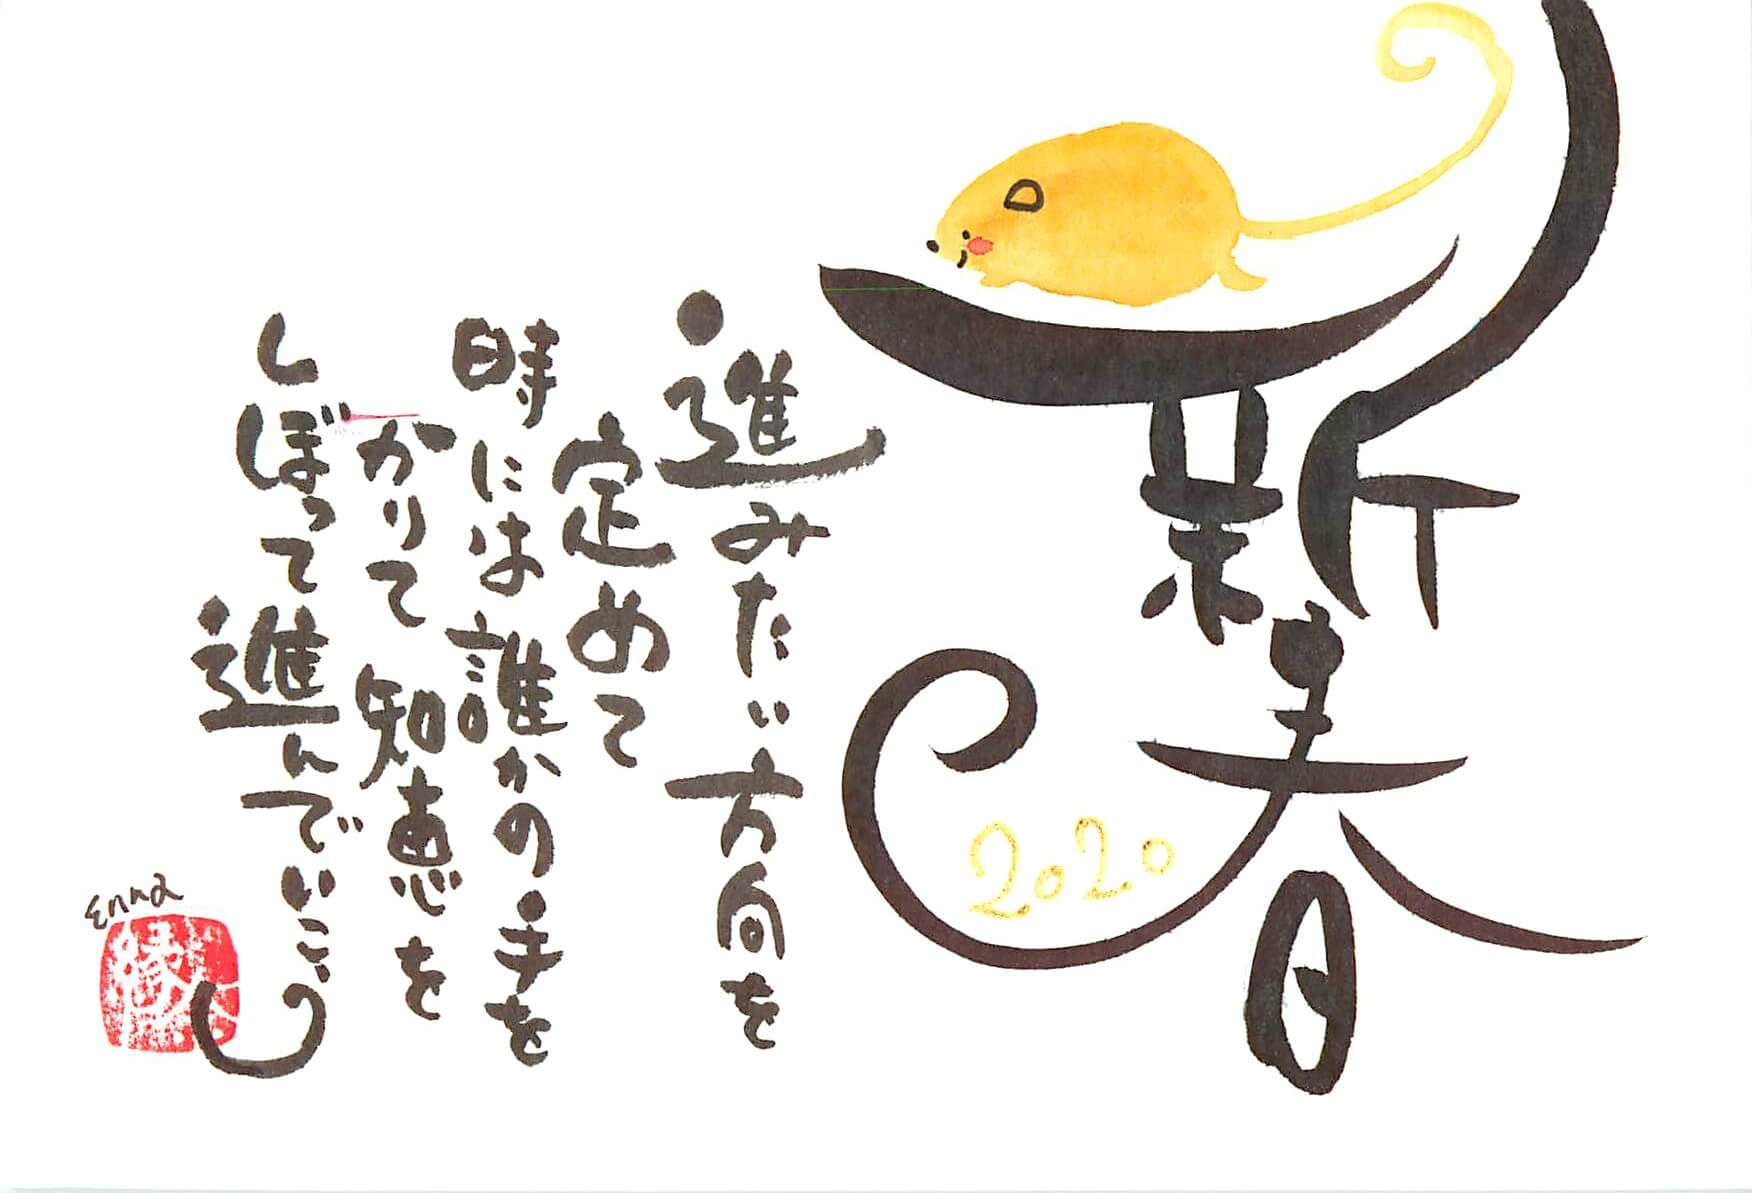 新春
2020
進みたい方向を
定めて
時には誰かの手を
かりて知恵を
しぼって進んでいこう
Enna
縁